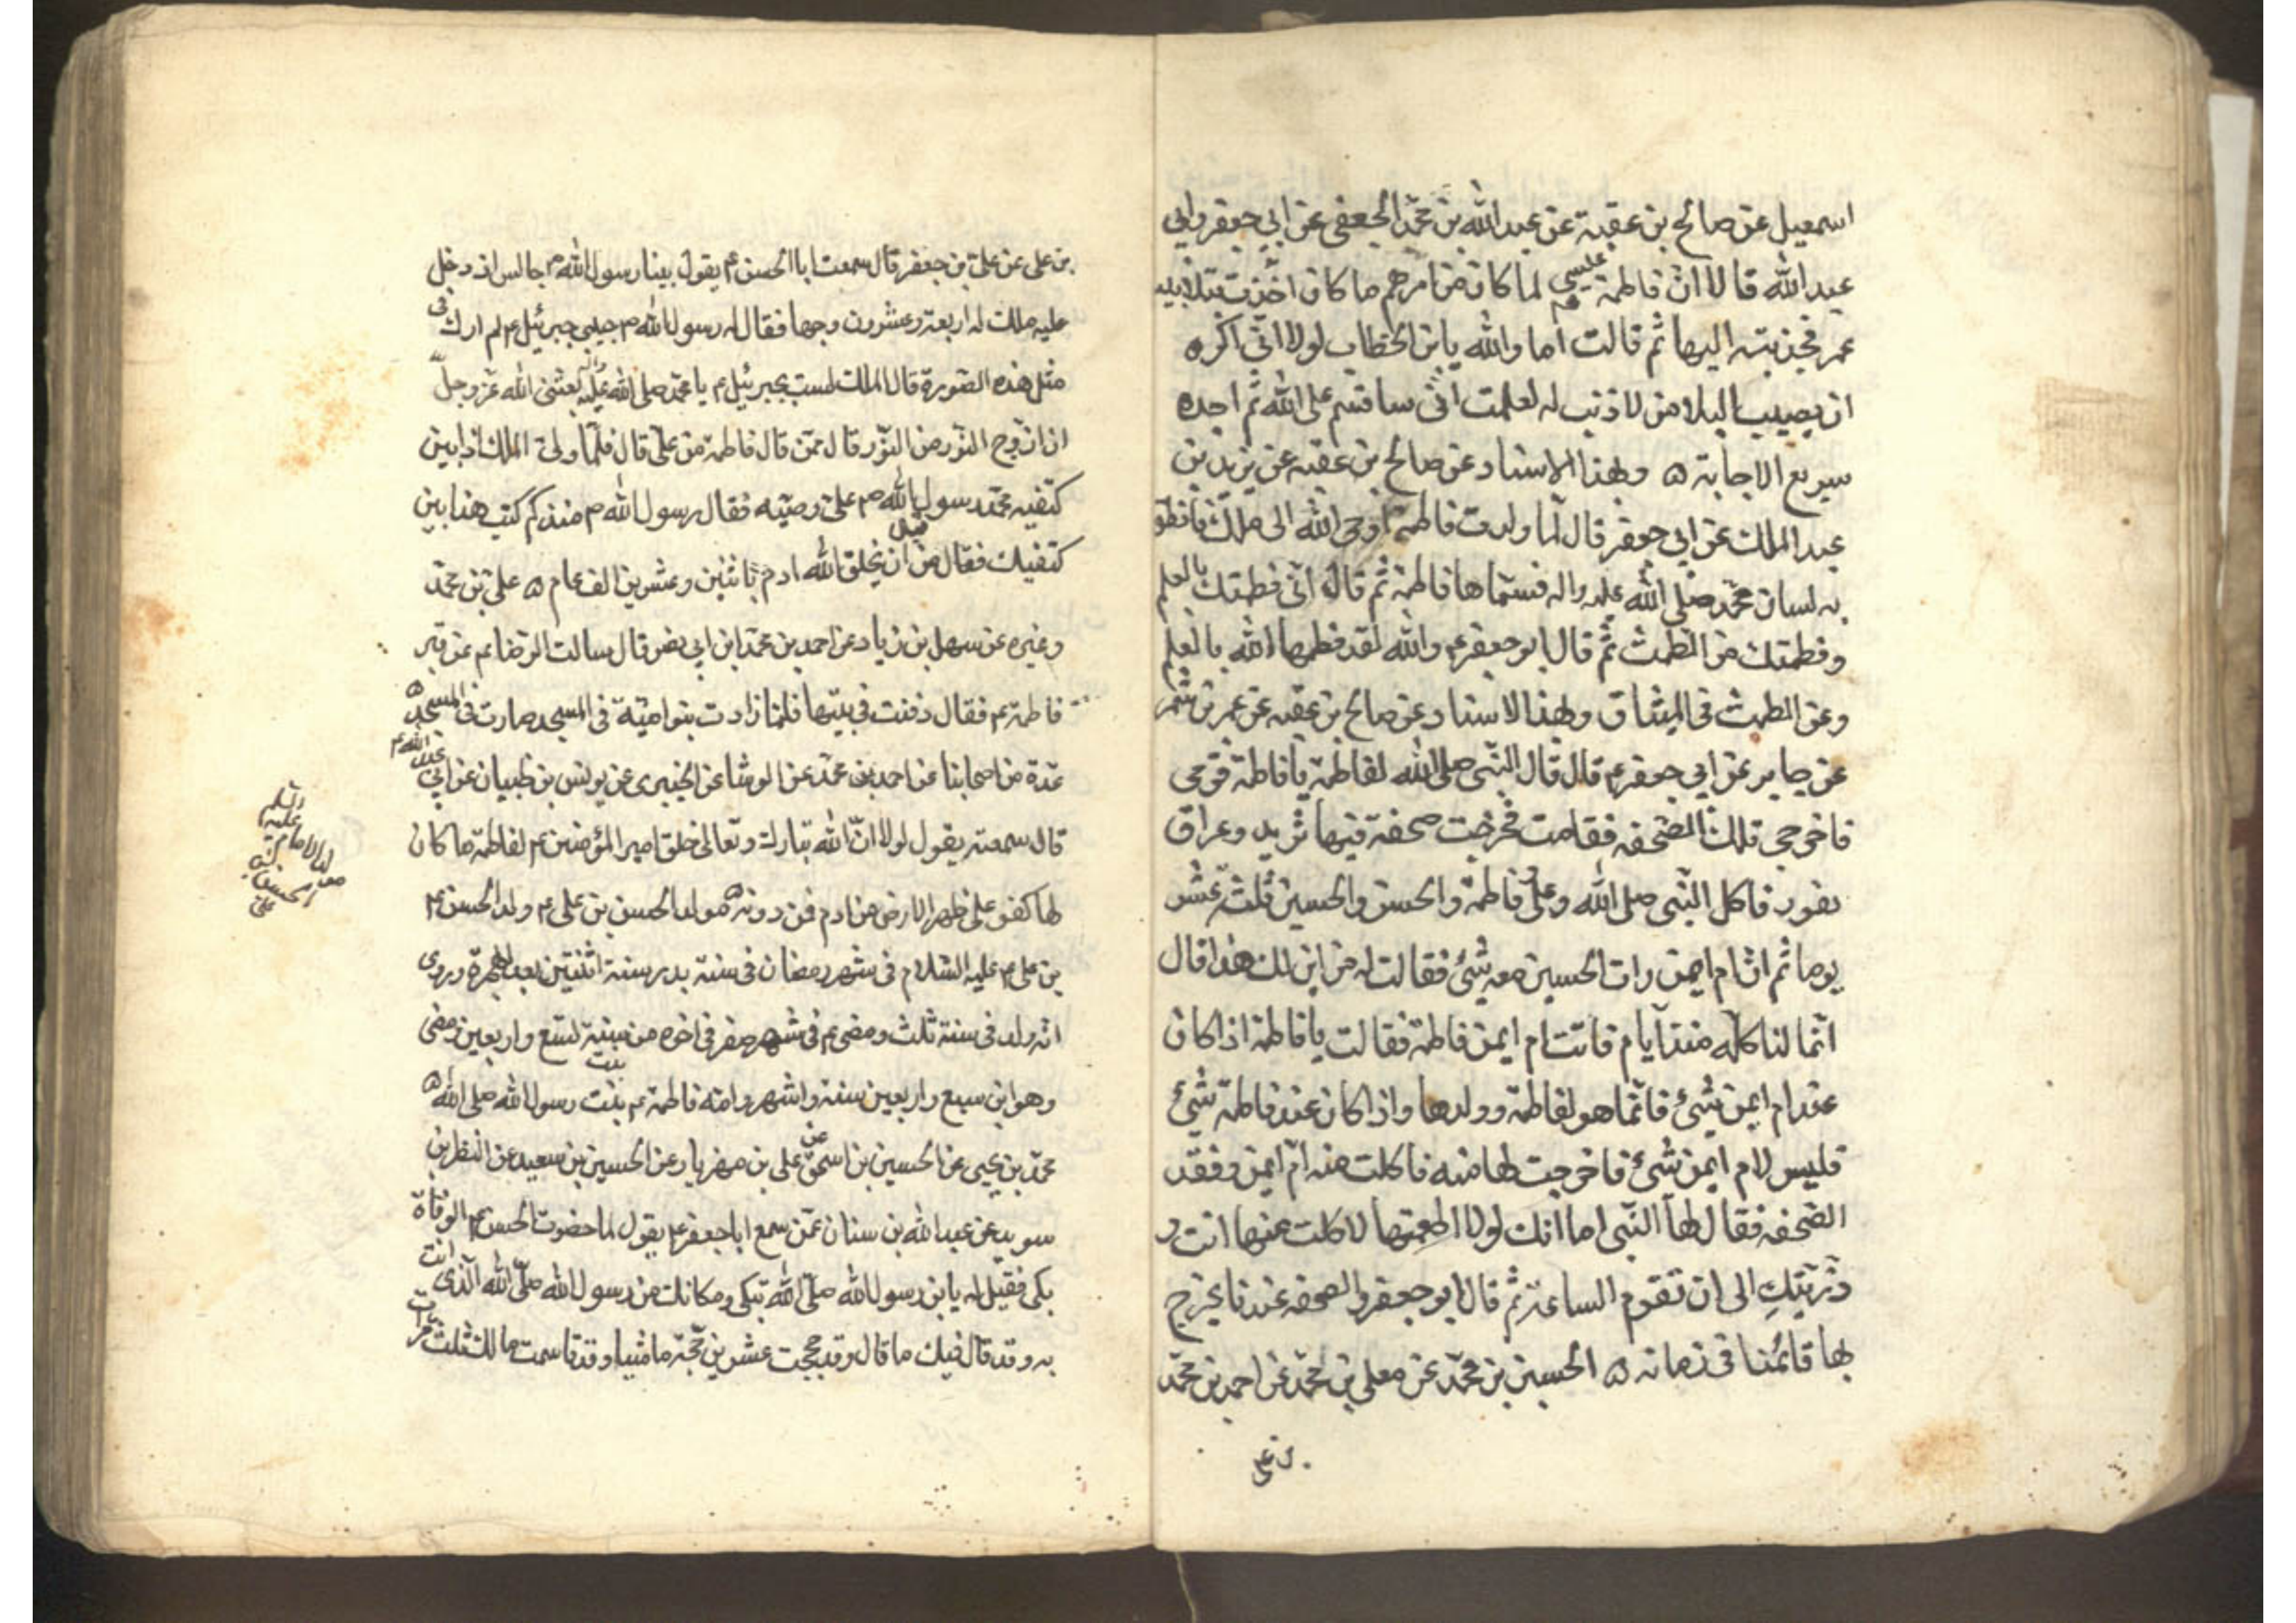 اسمعيل عن صالح بن عقبة عن عبد الله بن محمد الجعفى عن ابي جعفر وابي
عبد الله قالا ان فاطمة لما كان من امرهم ما كان اخذت بتلابيب
عمر فجذبته اليها ثم قالت اما والله يابن الخطاب لولا انى اكره
ان يصيب البلا من لا ذنب له لعلمت انى ساقسم على الله ثم اجده
سريع الاجابة ۵ وبهذا الاسناد عن صالح بن عقبه عن يزيد بن
عبد الملك عن ابي جعفر قال لما ولدت فاطمة ع اوحى الله الى ملك فانطق
به لسان محمد صلى الله عليه واله فسماها فاطمة ثم قال انى فطمتك بالعلم
وفطمتك من الطمث ثم قال ابو جعفر ع والله لقد فطمها الله بالعلم
وعن الطمث فى الميثاق وبهذا الاسناد عن صالح بن عقبه عن عمر بن شمر
عن جابر عن ابي جعفر ع قال قال النبى صلى الله لفاطمة يا فاطمة قومى
فاخرجى تلك الصحفه فقامت فخرجت صحفة فيها ثريد وعراق
يفور فاكل النبى صلى الله وعلى وفاطمة والحسن والحسين ثلثة عشر
يوما ثم ان ام ايمن رات الحسين معه شئ فقالت له من اين لك هذا قال
انما لناكله منذ ايام فاتت ام ايمن فاطمة فقالت يا فاطمة اذا كان
عند ام ايمن شئ فانما هو لفاطمة وولدها واذا كان عند فاطمة شئ
فليس لام ايمن شئ فاخرجت لها منه فاكلت منه ام ايمن وفقد
الصحفه فقال لها النبى اما انك لولا اطعمتها لاكلت منها انت و
ذريتك الى ان تقوم الساعة ثم قال ابو جعفر والصحفه عندنا يخرج
بها قائمنا فى زمانه ۵ الحسين بن محمد عن معلى بن محمد عن احمد بن محمد
بن على
بن على عن على بن جعفر قال سمعت ابا الحسن ع يقول بينا رسول الله ص جالس اذ دخل
عليه ملك له اربعة وعشرون وجها فقال له رسول الله ص حبيبى جبرئيل ع لم ارك فى
مثل هذه الصورة قال الملك لست بجبرئيل ع يا محمد صلى الله عليه واله بعثنى الله عز وجل
ان ازوج النور من النور قال ممن قال فاطمة من على قال فلما ولى الملك اذا بين
كتفيه محمد رسول الله ص على وصيه فقال رسول الله ص منذ كم كتب هذا بين
كتفيك فقال من قبل ان يخلق الله ادم باثنين وعشرين الف عام ۵ على بن محمد
وغيره عن سهل بن زياد عن احمد بن محمد ابن ابي نصر قال سالت الرضا عم عن قبر
فاطمة عم فقال دفنت فى بيتها فلما زادت بنو امية فى المسجد صارت فى المسجد ۵
عدة من اصحابنا عن احمد بن محمد عن الوشا عن الخيبرى عن يونس بن ظبيان عن ابي عبد الله ع
قال سمعته يقول لولا ان الله تبارك وتعالى خلق امير المؤمنين ع لفاطمة ما كان
لها كفو على ظهر الارض من ادم فمن دونه ۵ مولد الحسن بن على ع ولد الحسن ع
مولد الامام الزكى الحسن بن على عليه السلم
بن على ع عليه السلام فى شهر رمضان فى سنة بدر سنة اثنتين بعد الهجرة وروى
انه ولد فى سنة ثلث ومضى عم فى شهر صفر فى اخره من سنة تسع واربعين ومضى
وهو ابن سبع واربعين سنة واشهر وامه فاطمة عم بنت رسول الله صلى الله ۵
محمد بن يحيى عن الحسين بن اسحق عن على بن مهزيار عن الحسين بن سعيد عن النظر بن
سويد عن عبد الله بن سنان عمن سمع ابا جعفر ع يقول لما حضرت الحسن عم الوفاة
بكى فقيل له يابن رسول الله صلى الله تبكى ومكانك من رسول الله صلى الله الذى انت
به وقد قال فيك ما قال وقد حججت عشرين حجة ماشيا وقد قاسمت مالك ثلث مرات